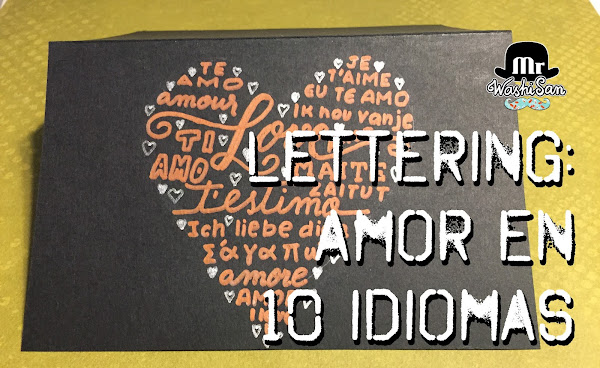 Mr
WashiSan
TE
AMO
amour
TI
AMO
Love
JE
T'AIME
EU TE AMO
ik hou van je
MAITE
ZAITUT
t'estimo
Ich liebe
Σ'αγαπ
amore
LETTERING:
AMOR EN
10 IDIOMAS